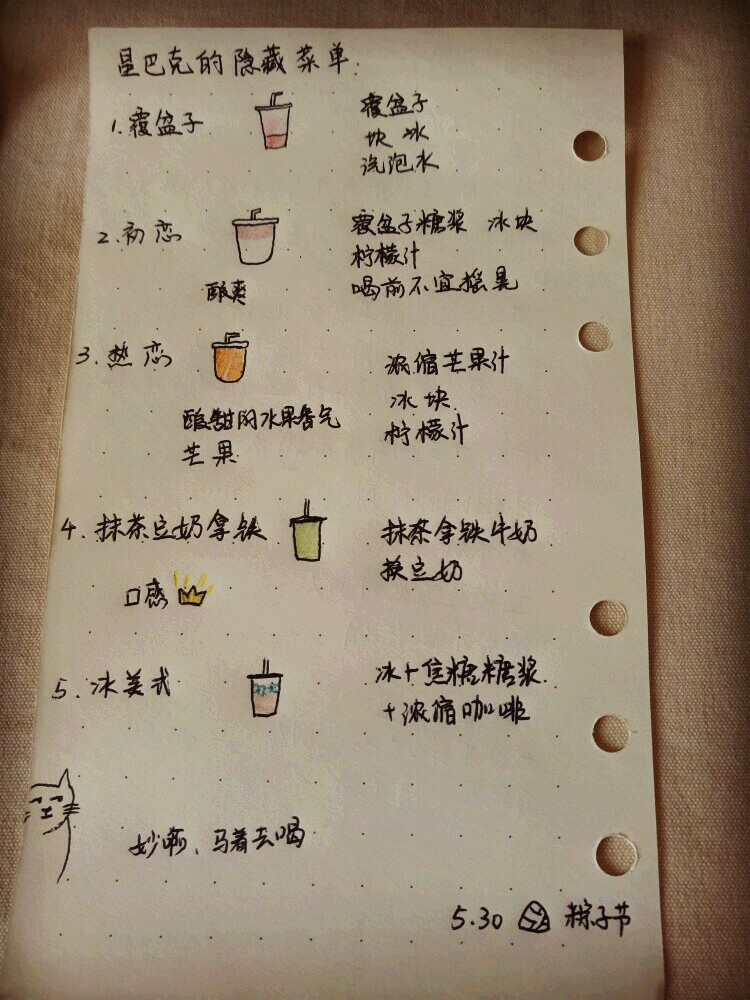 星巴克的隐藏菜单.
1.覆盆子
覆盆子
块冰
汽泡水
2.初恋
酸爽
覆盆子糖浆 冰块
柠檬汁
喝前不宜摇晃
3.热恋
酸甜的水果香气
芒果
浓缩芒果汁
冰块
柠檬汁
4.抹茶豆奶拿铁
口感
抹茶拿铁牛奶
换豆奶
5.冰美式
冰+焦糖糖浆
+浓缩咖啡
妙啊、马着去喝
5.30 粽子节